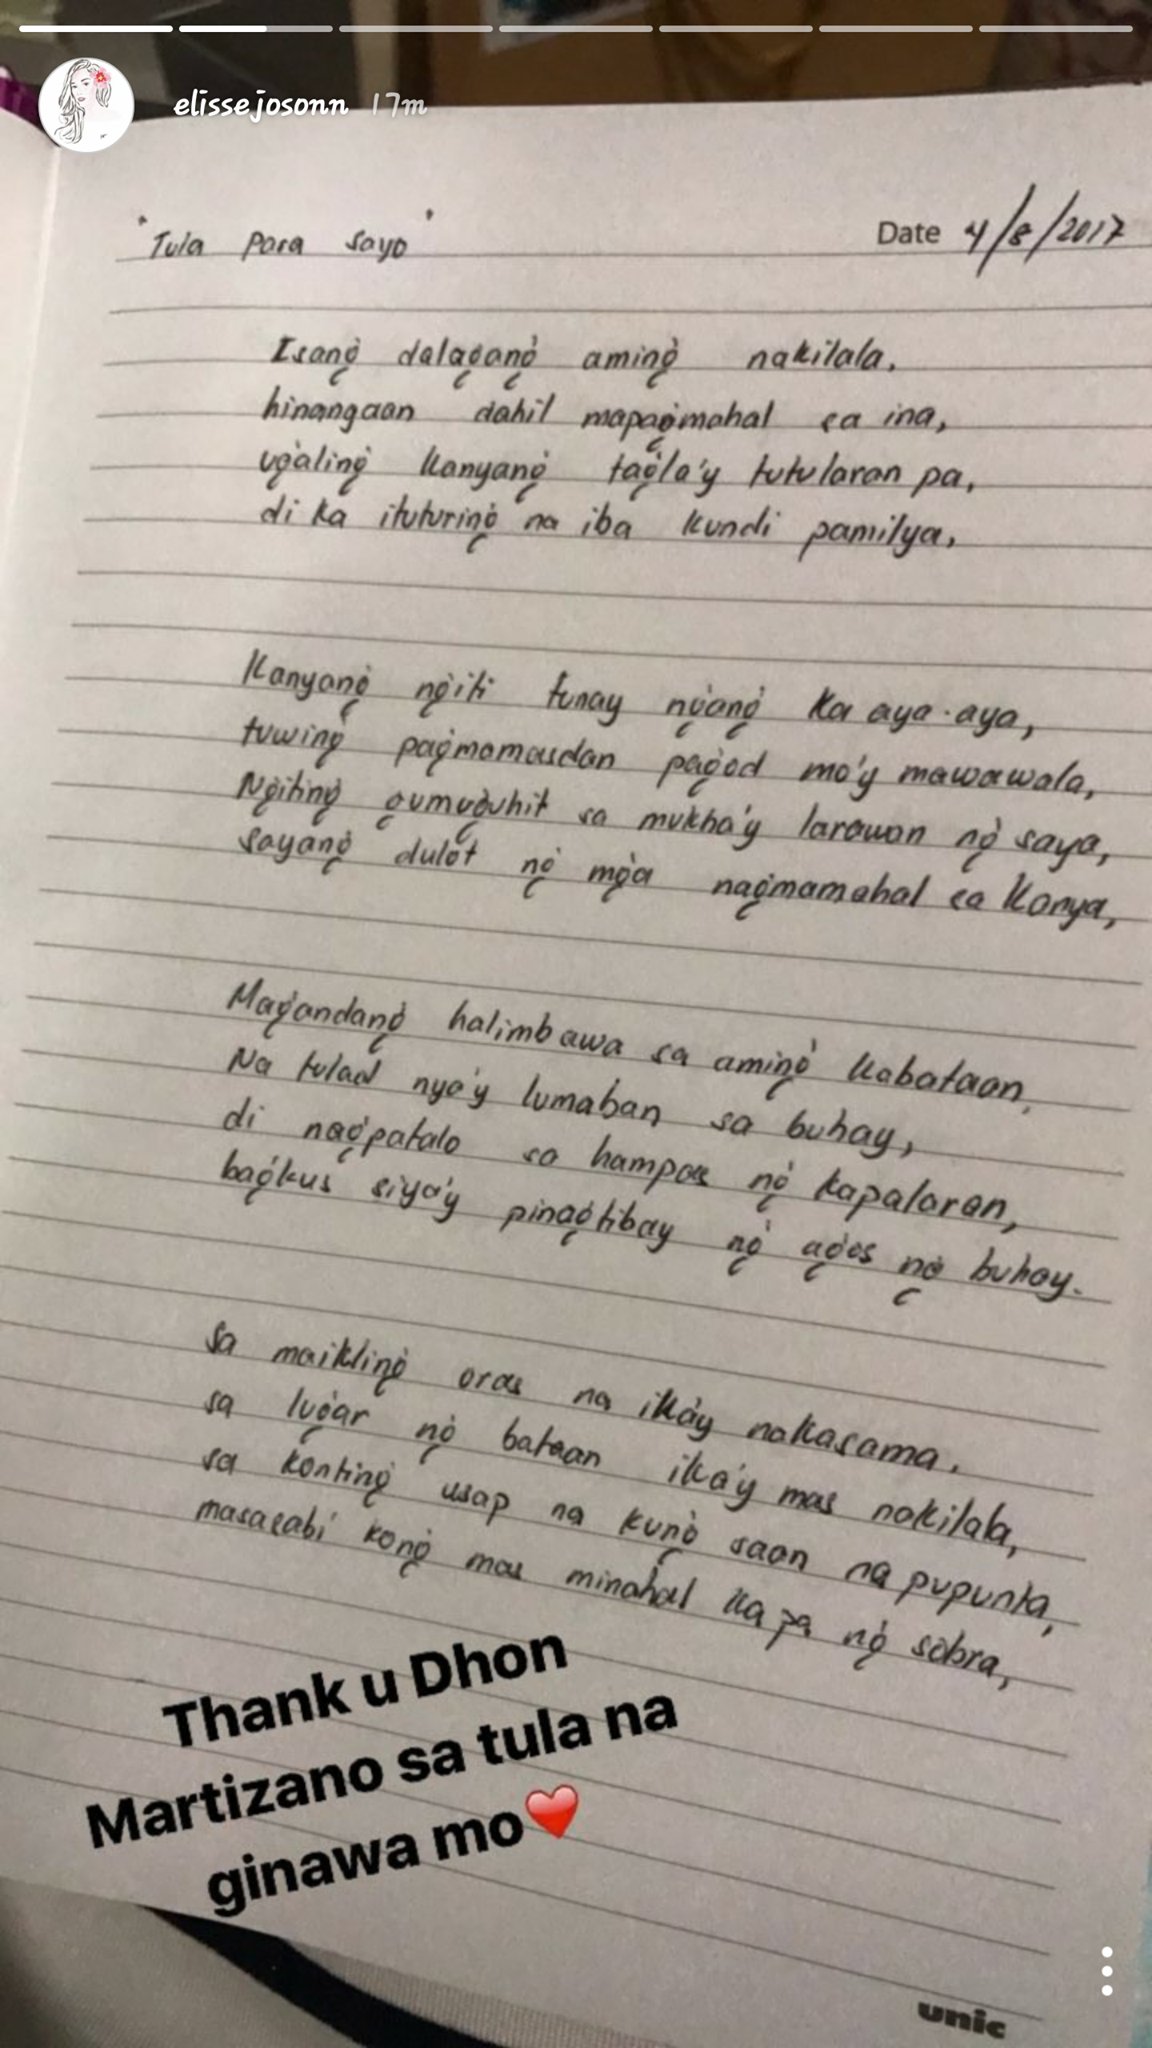 elissejosonn 17m
"Tula para sayo"
Date 4/8/2017
Isang dalagang aming nakilala,
hinangaan dahil mapagmahal sa ina,
ugaling kanyang tagla'y tutularan pa,
di ka ituturing na iba kundi pamilya,
Kanyang ngiti tunay ngang ka aya-aya,
tuwing pagmamasdan pagod mo'y mawawala,
Ngiting gumuguhit sa mukha'y larawan ng saya,
sayang dulot ng mga nagmamahal sa kanya,
Magandang halimbawa sa aming kabataan,
Na tulad nya'y lumaban sa buhay,
di nagpatalo sa hampas ng kapalaran,
bagkus siya'y pinagtibay ng agos ng buhay.
Sa maikling oras na ika'y nakasama,
sa lugar ng bataan ika'y mas nakilala,
sa konting usap na kung saan na pupunta,
masasabi kong mas minahal ka pa ng sobra,
Thank u Dhon
Martizano sa tula na
ginawa mo❤️
unic